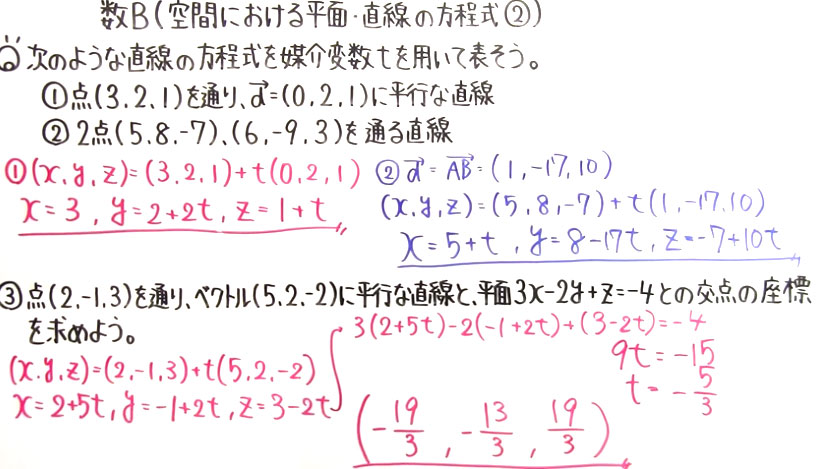 数B(空間における平面・直線の方程式②)
Q 次のような直線の方程式を媒介変数tを用いて表そう。
①点(3,2,1)を通り、d⃗=(0,2,1)に平行な直線
②2点(5,8,-7)、(6,-9,3)を通る直線
①(x,y,z)=(3,2,1)+t(0,2,1)
x=3, y=2+2t, z=1+t
②d⃗=AB⃗=(1,-17,10)
(x,y,z)=(5,8,-7)+t(1,-17,10)
x=5+t, y=8-17t, z=-7+10t
③点(2,-1,3)を通り、ベクトル(5,2,-2)に平行な直線と、平面3x-2y+z=-4との交点の座標
を求めよう。
(x,y,z)=(2,-1,3)+t(5,2,-2)
x=2+5t, y=-1+2t, z=3-2t
3(2+5t)-2(-1+2t)+(3-2t)=-4
9t=-15
t=-5/3
(-19/3, -13/3, 19/3)